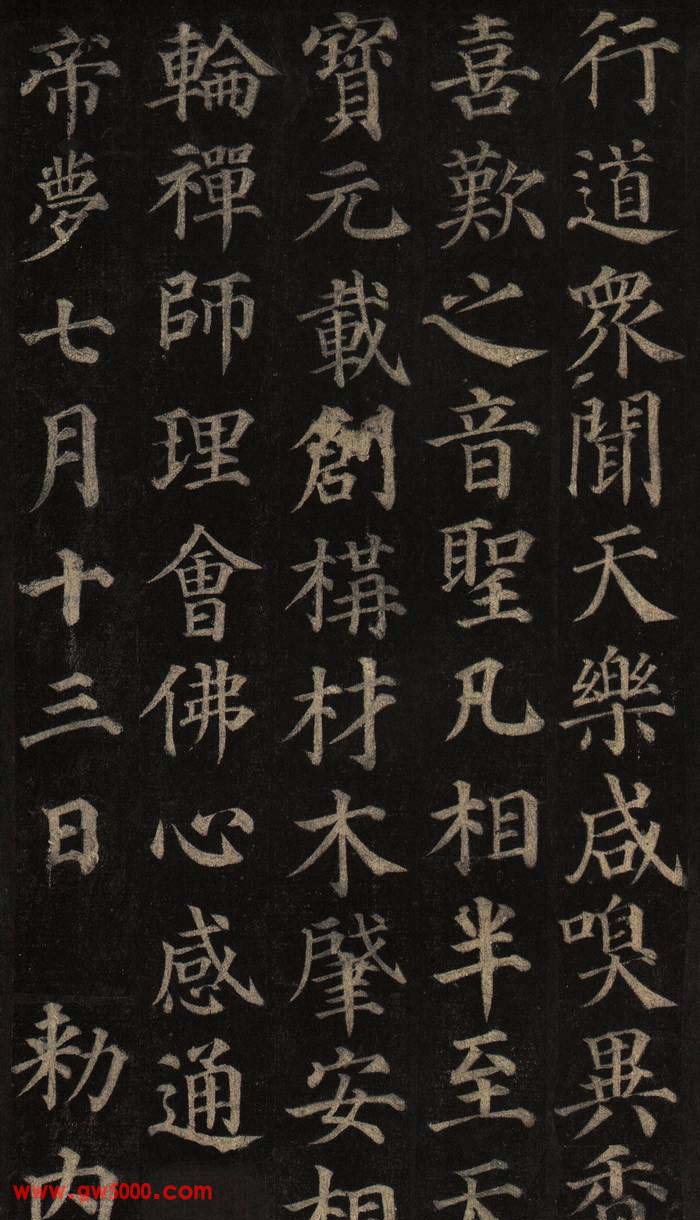 行道眾聞天樂咸嗅異香
喜歎之音聖凡相半至天
寶元載創構材木肇安相
輪禪師理會佛心感通
帝夢七月十三日 勅內
www.gw5000.com